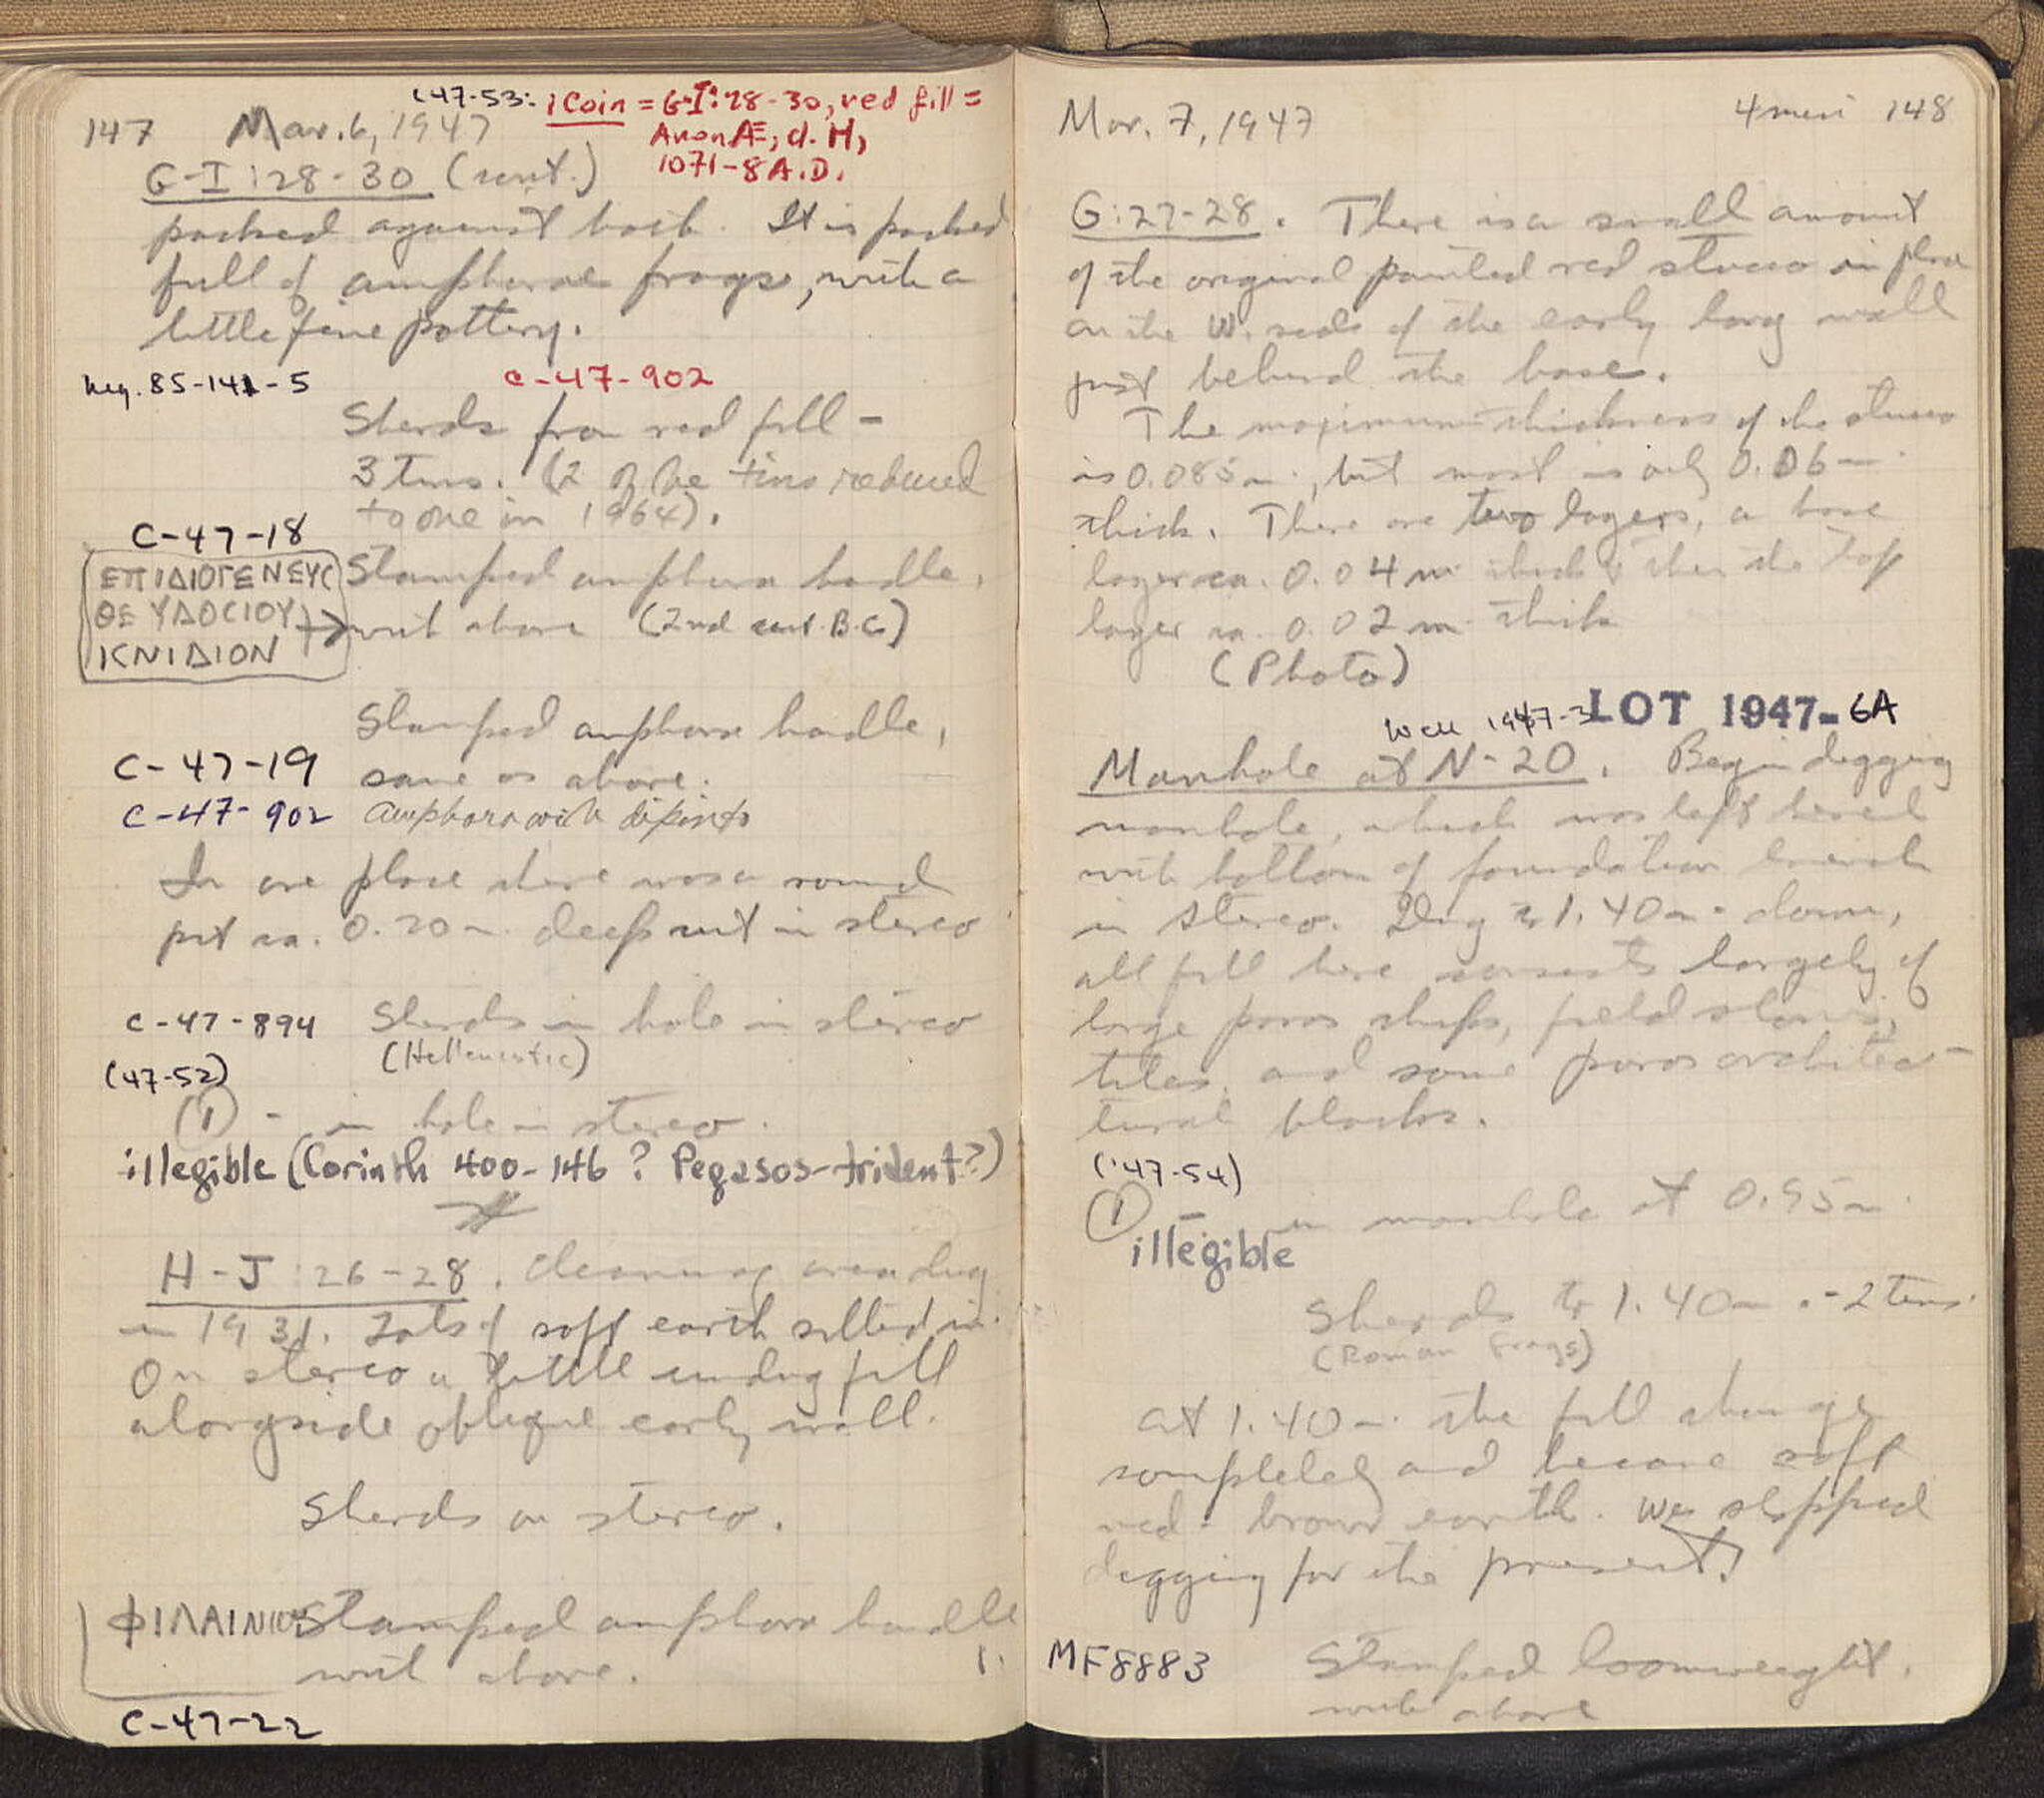 147 Mar. 6, 1947
(47-53: 1 Coin = G-I:28-30, red fill =
Anon Æ, cl. H,
1071-8 A.D.
G-I:28-30 (cont.)
packed against both. It is packed
full of amphorae frags, with a
little fine pottery.
neg. 85-141-5
C-47-902
Sherds from red fill -
3 tins. (2 of the tins reduced
to one in 1964).
C-47-18
ΕΠΙΔΙΟΓΕΝΕΥϹ
ΘΕΥΔΟϹΙΟΥ
ΚΝΙΔΙΟΝ
Stamped amphora handle,
with above (2nd cent. B.C.)
Stamped amphora handle,
C-47-19 same as above.
C-47-902 amphora with dipinto
In one place there was a round
pit ca. 0.20 m. deep cut in stereo
C-47-894 Sherds in hole in stereo
(Hellenistic)
(47-52)
① - in hole in stereo.
illegible (Corinth 400-146? Pegasos-trident?)
H-J:26-28. Cleaning area dug
in 193 . Lots of soft earth silted in.
On stereo a little undug fill
alongside oblique early wall.
Sherds on stereo.
ΦΙΛΑΙΝΙΟΥ Stamped amphora handle
with above. 1.
C-47-22
Mar. 7, 1947 4 men 148
G:27-28. There is a small amount
of the original painted red stucco in place
on the W. side of the early long wall
just behind the base.
The maximum thickness of the stucco
is 0.085 m., but most is only 0.06 m.
thick. There are two layers, a base
layer ca. 0.04 m. thick & then the top
layer ca. 0.02 m. thick
(Photo)
Well 1947-3 LOT 1947-6A
Manhole at N-20. Begin digging
manhole, which was left level
with bottom of foundation trench
in stereo. Dug to 1.40 m. down,
all fill here consists largely of
large poros chips, field stones,
tiles, and some poros architec-
tural blocks.
('47-54)
① - in manhole at 0.95 m.
illegible
Sherds to 1.40 m. - 2 tins.
(Roman frags)
At 1.40 m. the fill changes
completely and became soft
red-brown earth. We stopped
digging for the present.
MF8883 Stamped loomweight.
with above